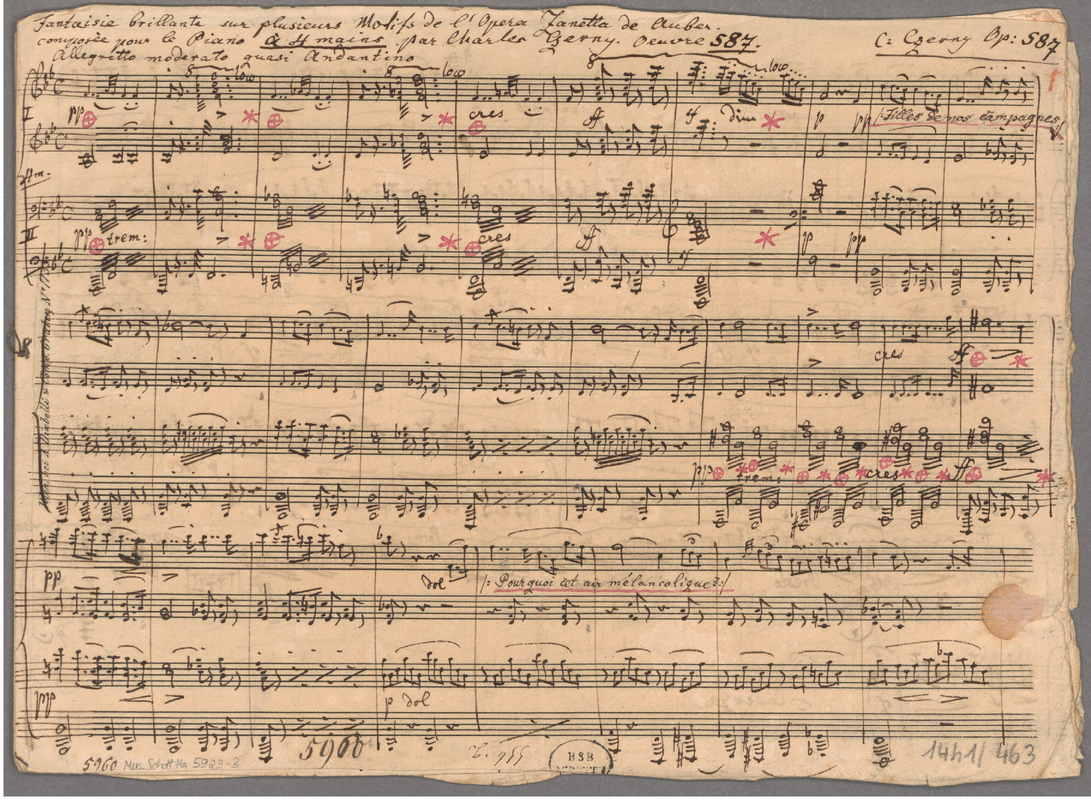 Fantaisie brillante sur plusieurs Motifs de l'Opera Zanetta de Auber.
composée pour le Piano à 4 mains, par Charles Czerny. Oeuvre 587.
C: Czerny Op: 587
Allegretto moderato quasi Andantino
8 loco 8 loco 8 loco
I
pp cres ff sf dim p pp |: Filles de nos campagnes
II
pp trem: cres ff sf p pp
cres ff
ppp trem: cres ff
pp dol |: Pourquoi cet air mélancolique? :|
pp p dol
5900
5960 Mus. Schott Ha 5929-3
BSB
14h1/463